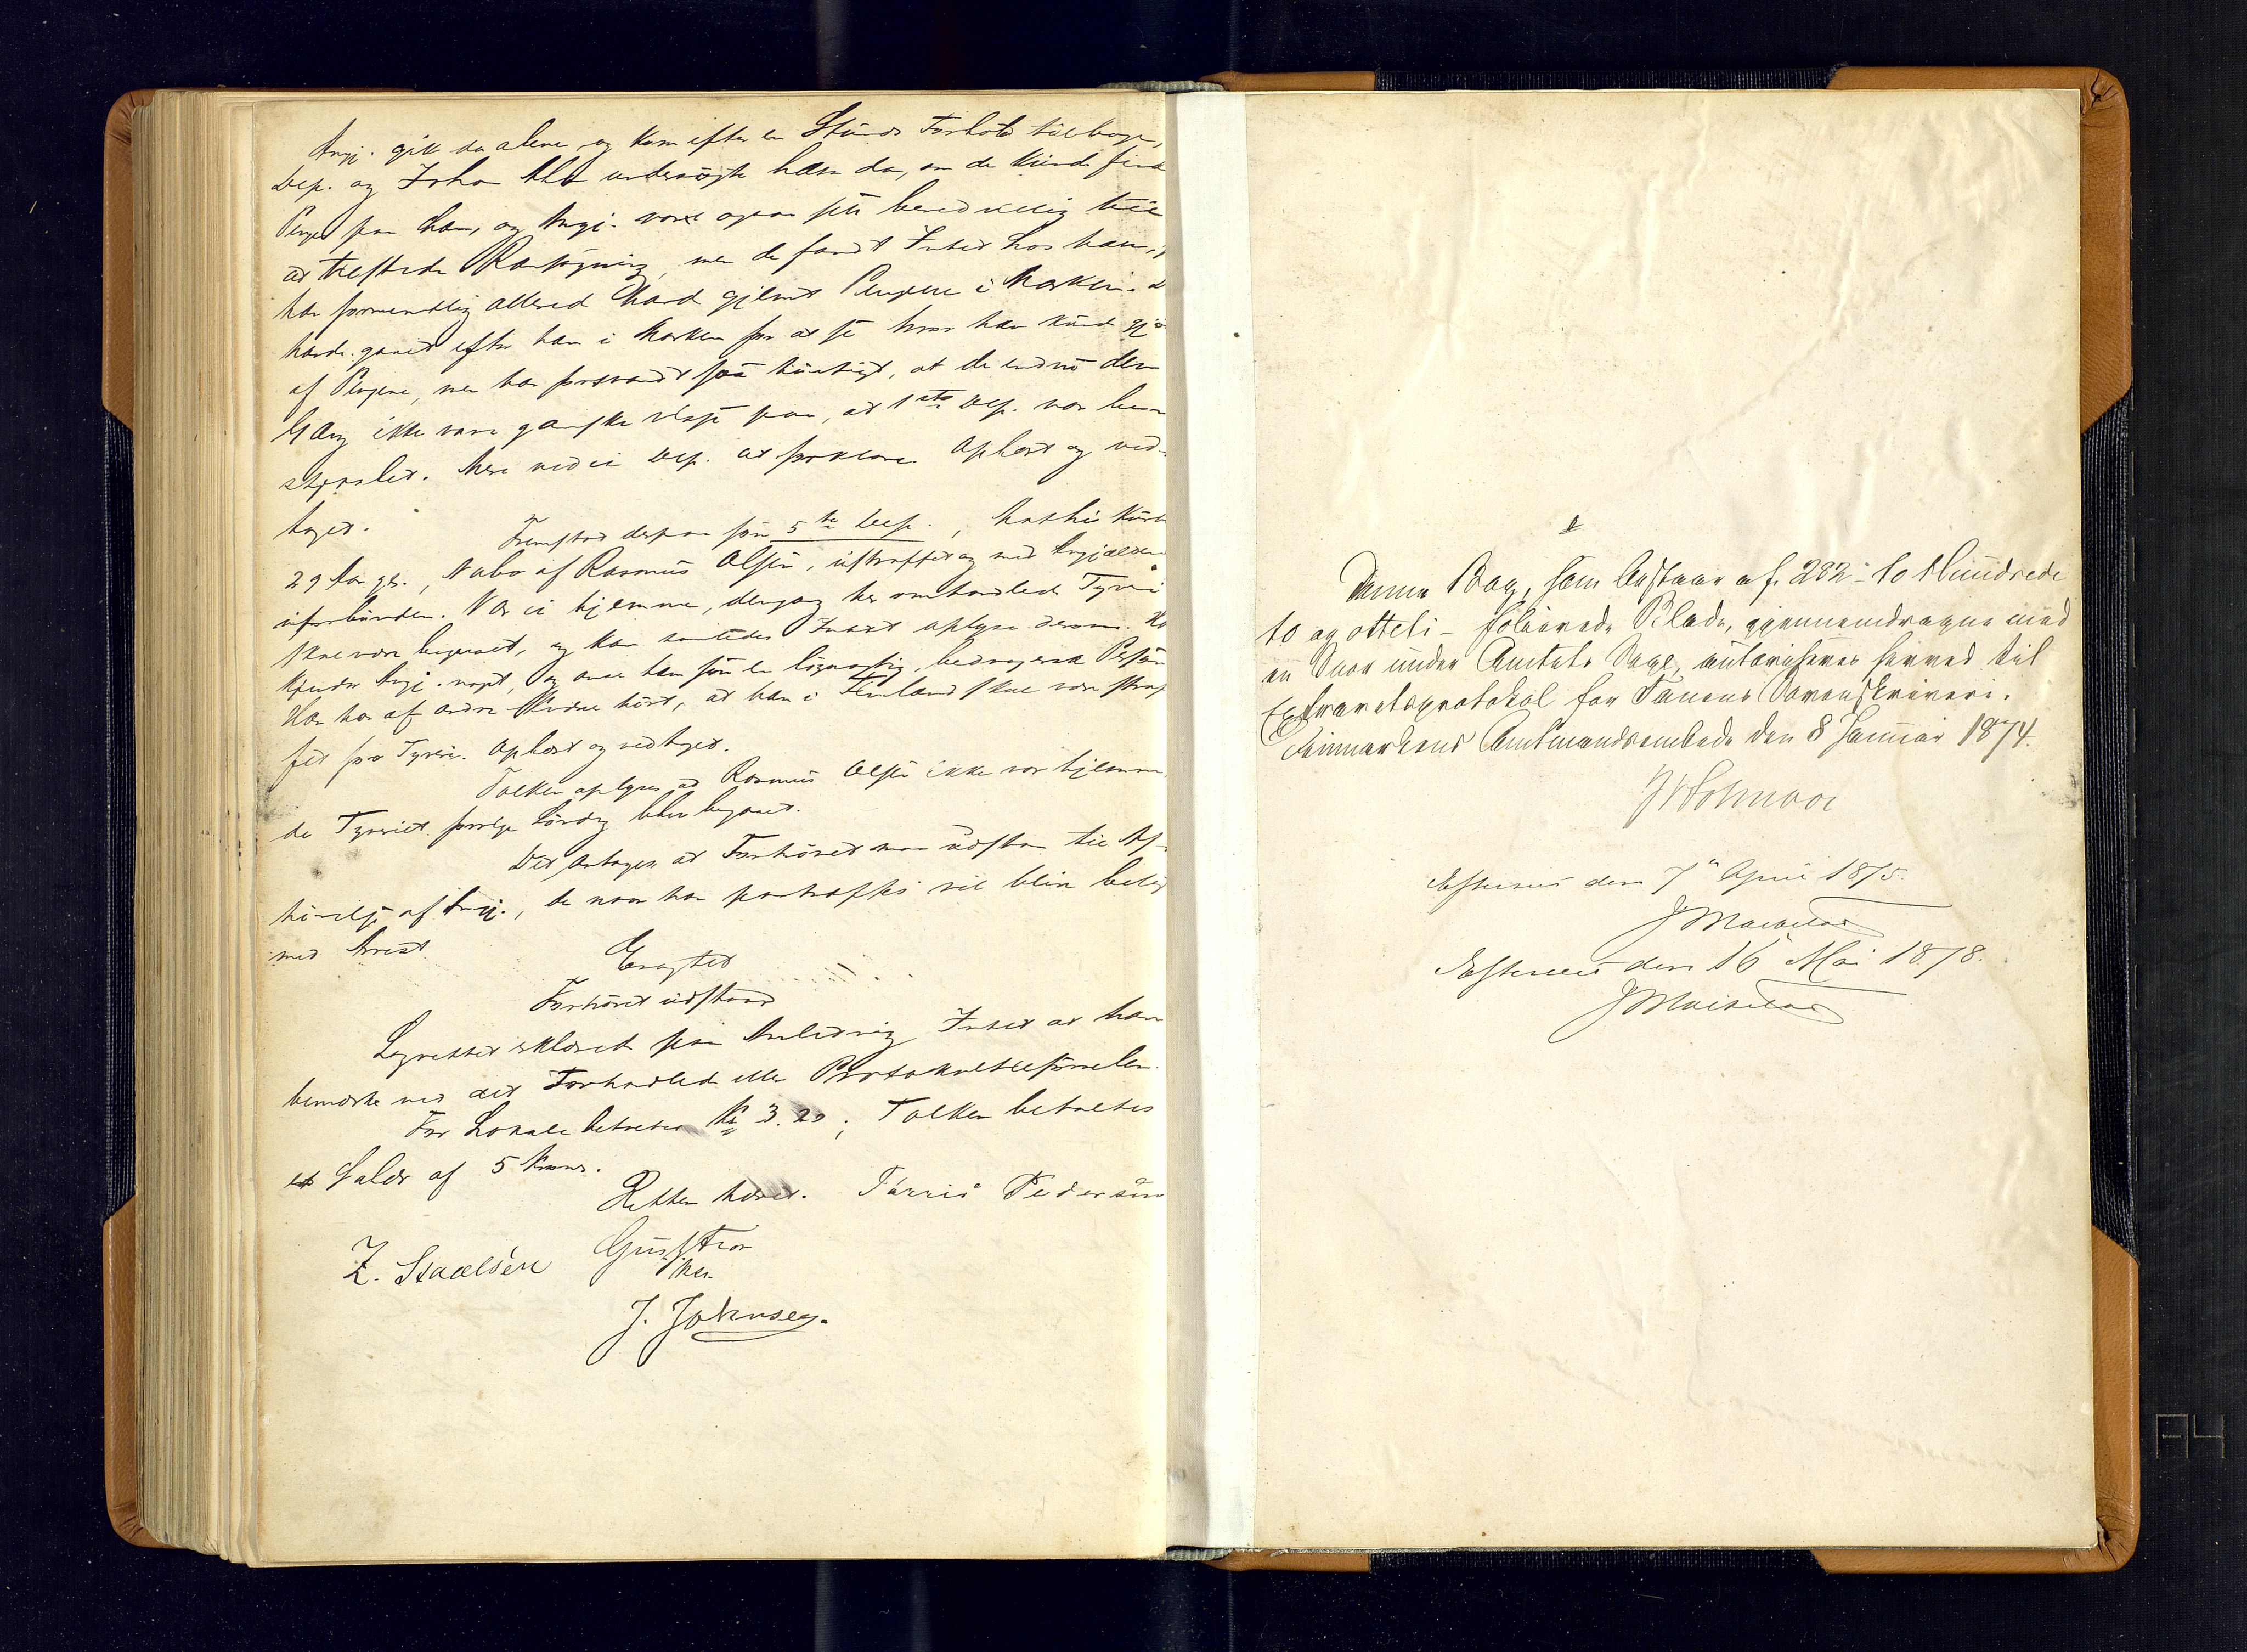 Angj. gik da alene og kom efter en Stunds Forløb tilbage,
Dep. og Johan undersøgte ham da, om de kunde finde
Penge paa ham, og Angj. var ogsaa selv beredvillig til
at tilstede Ransagning, men de fandt Intet hos ham,
han formentlig allerede havde gjemt Pengene i Marken.
havde gaaet efter ham i Marken for at se hvor han kunde gjø
af Pengene, men han forsvandt saa hurtigt, at de endnu den
Gang ikke vare ganske visse paa, at 1ste Dep. var be-
stjaalet. Mere vidste ei Dep. at forklare. Oplæst og ved-
taget.
Fremstod derpaa som 5te Dep.,
29 Aar gl., Nabo af Rasmus Olsen, ustraffet og med Angjældende
uforbunden. Var ei hjemme, dengang her omhandlede Tyveri
skal være begaaet, og kan saaledes Intet oplyse derom.
Kjender Angj. noget, og anser ham som en løgnagtig, bedragersk Person
Han har af andre hørt, at han i Finland skal være straf
fet for Tyveri. Oplæst og vedtaget.
Tolken oplyser at Rasmus Olsen ikke var hjemme
da Tyveriet forrige Lørdag blev begaaet.
Det antoges at Forhøret maa udstaa til Af-
hørelse af Angj., da naar han paatræffes vil blive belagt
med Arrest.
Eragtet
Forhøret udstaar
Lagrettet erklæred paa Anledning Intet at have
bemærke ved det Forhandlede eller Protokoltilførselen.
For Lokale betales Kr 3.20; Tolken betaltes
et Salær af 5 Kroner.
Retten hævet. Tarris Pedersen
Z. Staalsen
J. Johnsen.
Denne Bog, som bestaar af 282 - to Hundrede
to og otteti - folierede Blade, gjennemdragne med
en Snor under Amtets Segl, autoriseres herved til
Extraretsprotokol for Tanens Sorenskriveri.
Finmarkens Amtmandsembede den 8 Januar 1874.
Holmboe
Efterseet den 7 April 1875.
Efterseet den 16 Mai 1878.